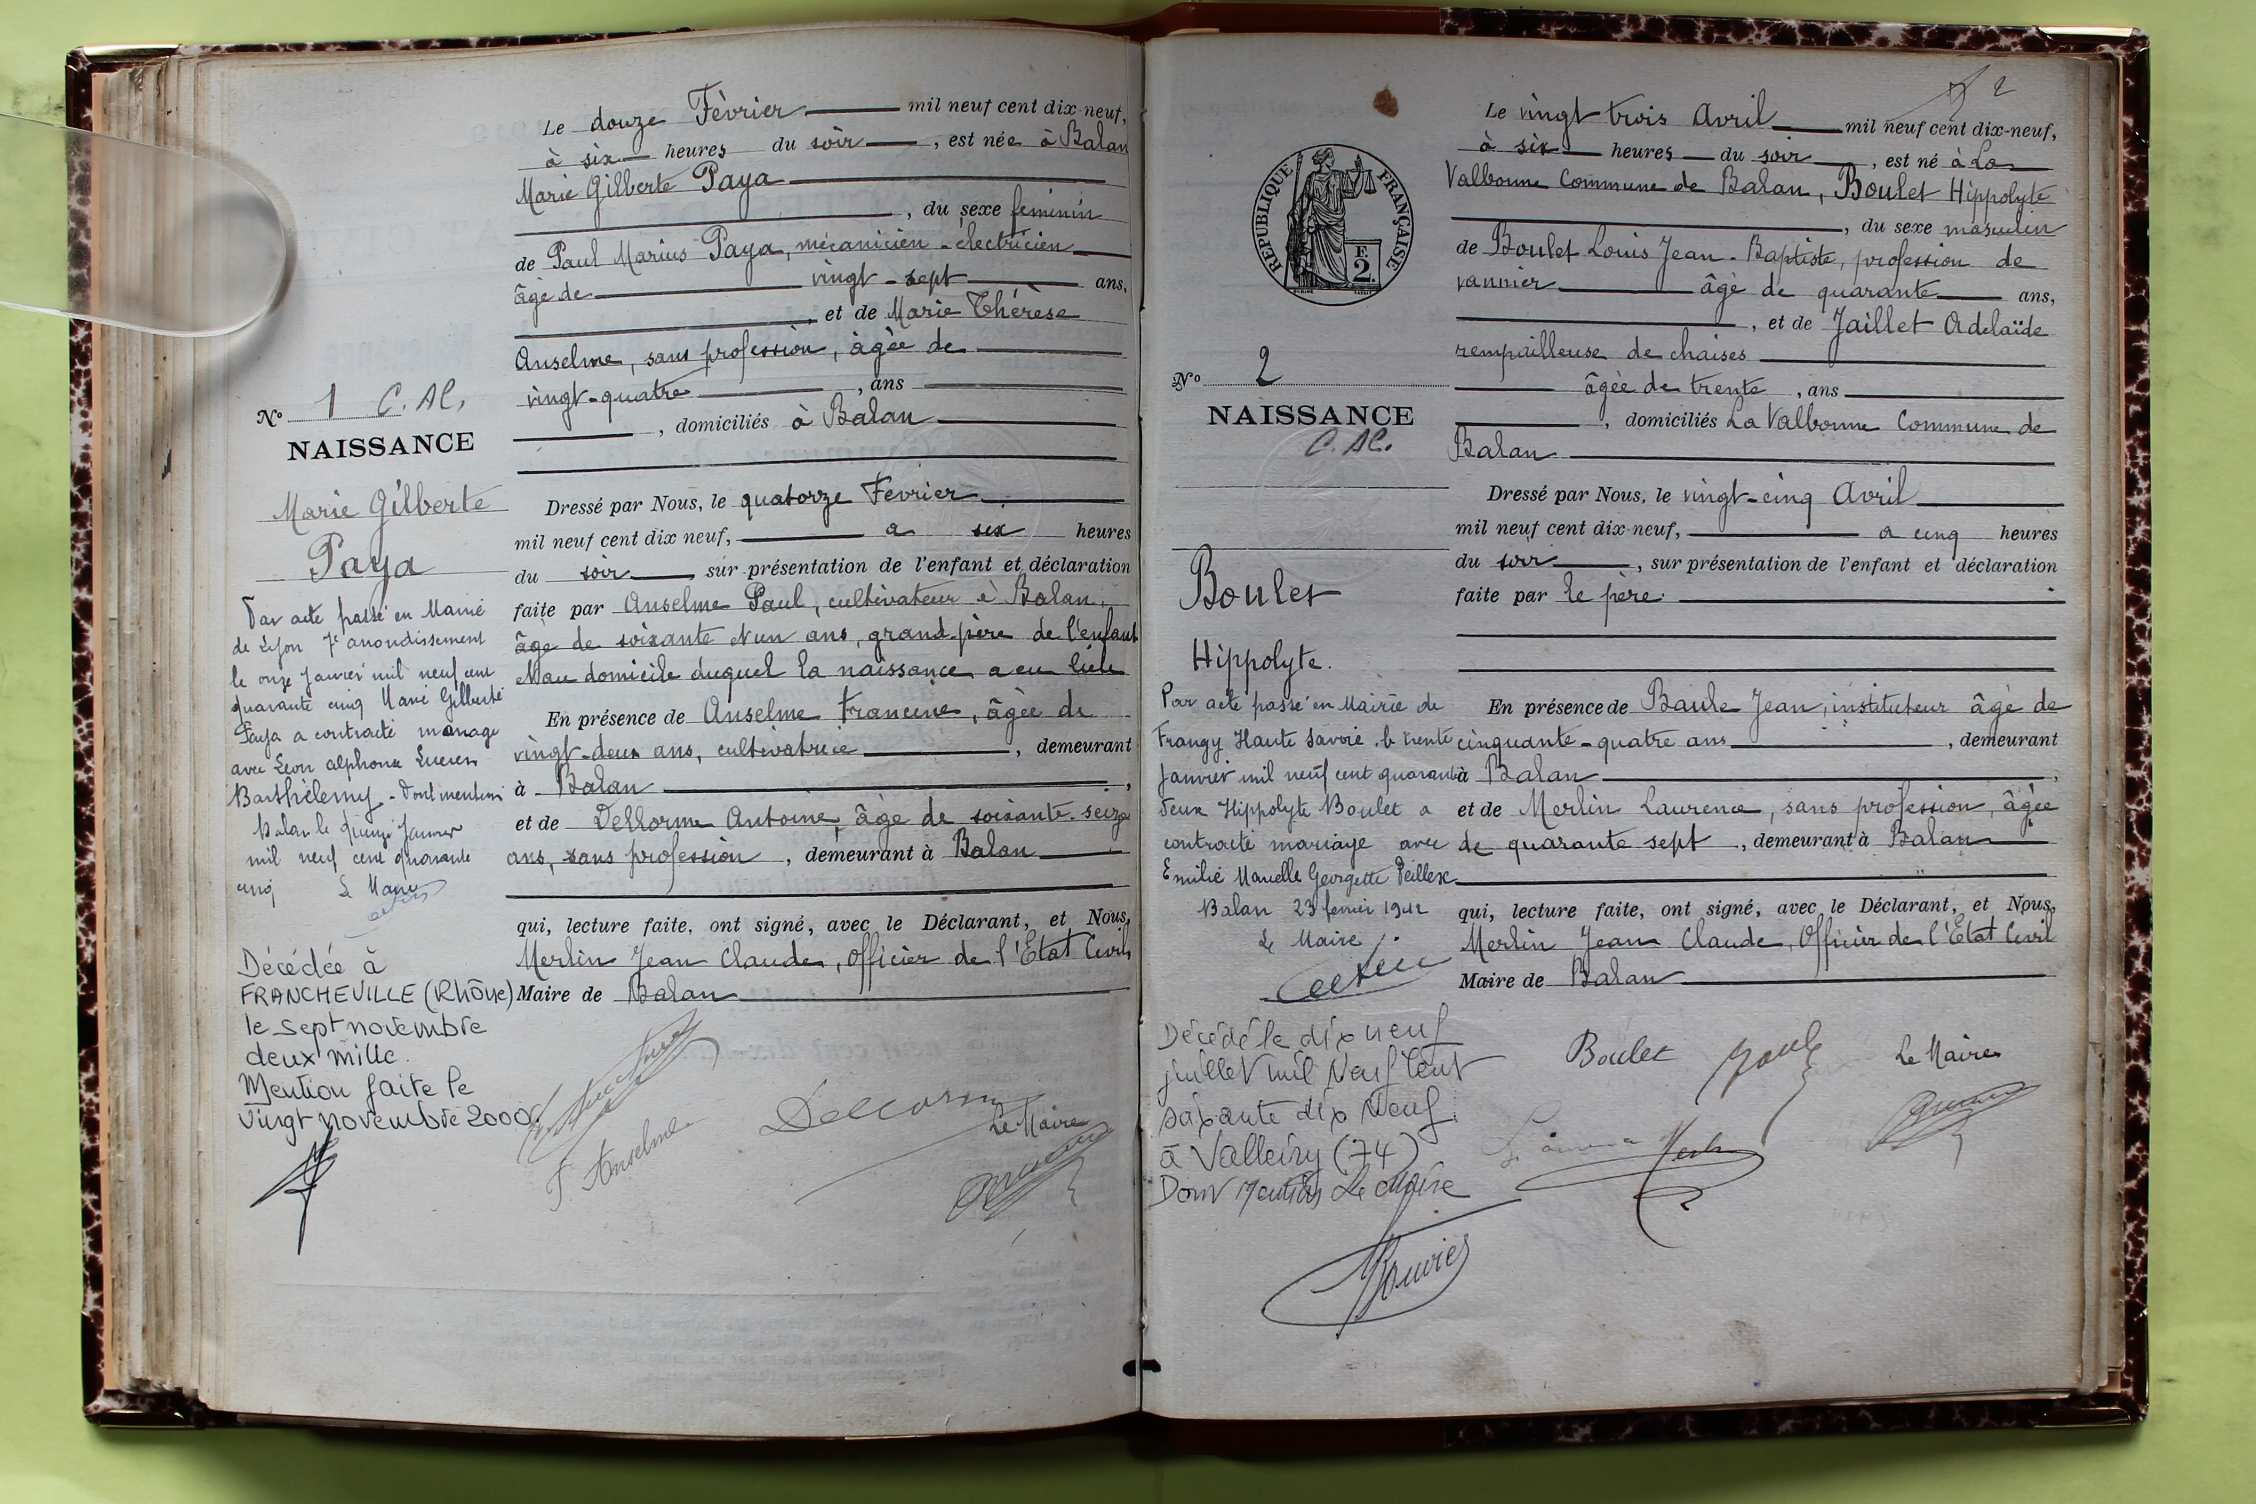 Le douze Février mil neuf cent dix-neuf,
à six heures du soir, est née à Balan
Marie Gilberte Paya
, du sexe feminin
de Paul Marius Paya, mécanicien-électricien
âgé de vingt-sept ans,
, et de Marie Thérèse
Anselme, sans profession, âgée de
vingt-quatre, ans
, domiciliés à Balan
Dressé par Nous, le quatorze Février
mil neuf cent dix neuf, a six heures
du soir, sur présentation de l'enfant et déclaration
faite par Anselme Paul, cultivateur à Balan,
âgé de soixante et un ans, grand-père de l'enfant
et au domicile duquel la naissance a eu lieu
En présence de Anselme Francine, âgée de
vingt-deux ans, cultivatrice, demeurant
à Balan,
et de Dellorme Antoine, âgé de soixante-seize
ans, sans profession, demeurant à Balan
qui, lecture faite, ont signé, avec le Déclarant, et Nous,
Merlin Jean Claude, Officier de l'Etat Civil
Maire de Balan
F. Anselme
Le Maire
No 1 C. AC.
NAISSANCE
Marie Gilberte
Paya
Par acte passé en Mairie
de Lyon 7e arrondissement
le onze Janvier mil neuf cent
quarante cinq Marie Gilberte
Paya a contracté mariage
avec Léon Alphonse Lucien
Barthélemy - Dont mention
Balan le quinze Janvier
mil neuf cent quarante
cinq Le Maire
Décédée à
FRANCHEVILLE (Rhône)
le sept novembre
deux mille.
Mention faite le
vingt novembre 2000
2
Le vingt trois Avril mil neuf cent dix-neuf,
à six heures du soir, est né à La
Valbonne Commune de Balan, Boulet Hippolyte
, du sexe masculin
de Boulet Louis Jean-Baptiste, profession de
vannier âgé de quarante ans,
, et de Jaillet Adelaïde
rempailleuse de chaises
âgée de trente, ans
, domiciliés La Valbonne Commune de
Balan
Dressé par Nous, le vingt-cinq Avril
mil neuf cent dix-neuf, a cinq heures
du soir, sur présentation de l'enfant et déclaration
faite par le père.
En présence de Baule Jean, instituteur âgé de
cinquante-quatre ans, demeurant
à Balan,
et de Merlin Laurence, sans profession, âgée
de quarante sept, demeurant à Balan
qui, lecture faite, ont signé, avec le Déclarant, et Nous,
Merlin Jean Claude, Officier de l'Etat Civil
Maire de Balan
Boulet
Le Maire
RÉPUBLIQUE FRANÇAISE
F.
2.
No 2
NAISSANCE
C. AC.
Boulet
Hippolyte.
Par acte passé en Mairie de
Frangy Haute Savoie, le trente
Janvier mil neuf cent quarante
deux Hippolyte Boulet a
contracté mariage avec
Emilie Marcelle Georgette Peillex
Balan 23 fevrier 1942
Le Maire
Décédé le dix neuf
juillet mil Neuf Cent
soixante dix Neuf
à Valleiry (74)
Dont Mention Le Maire